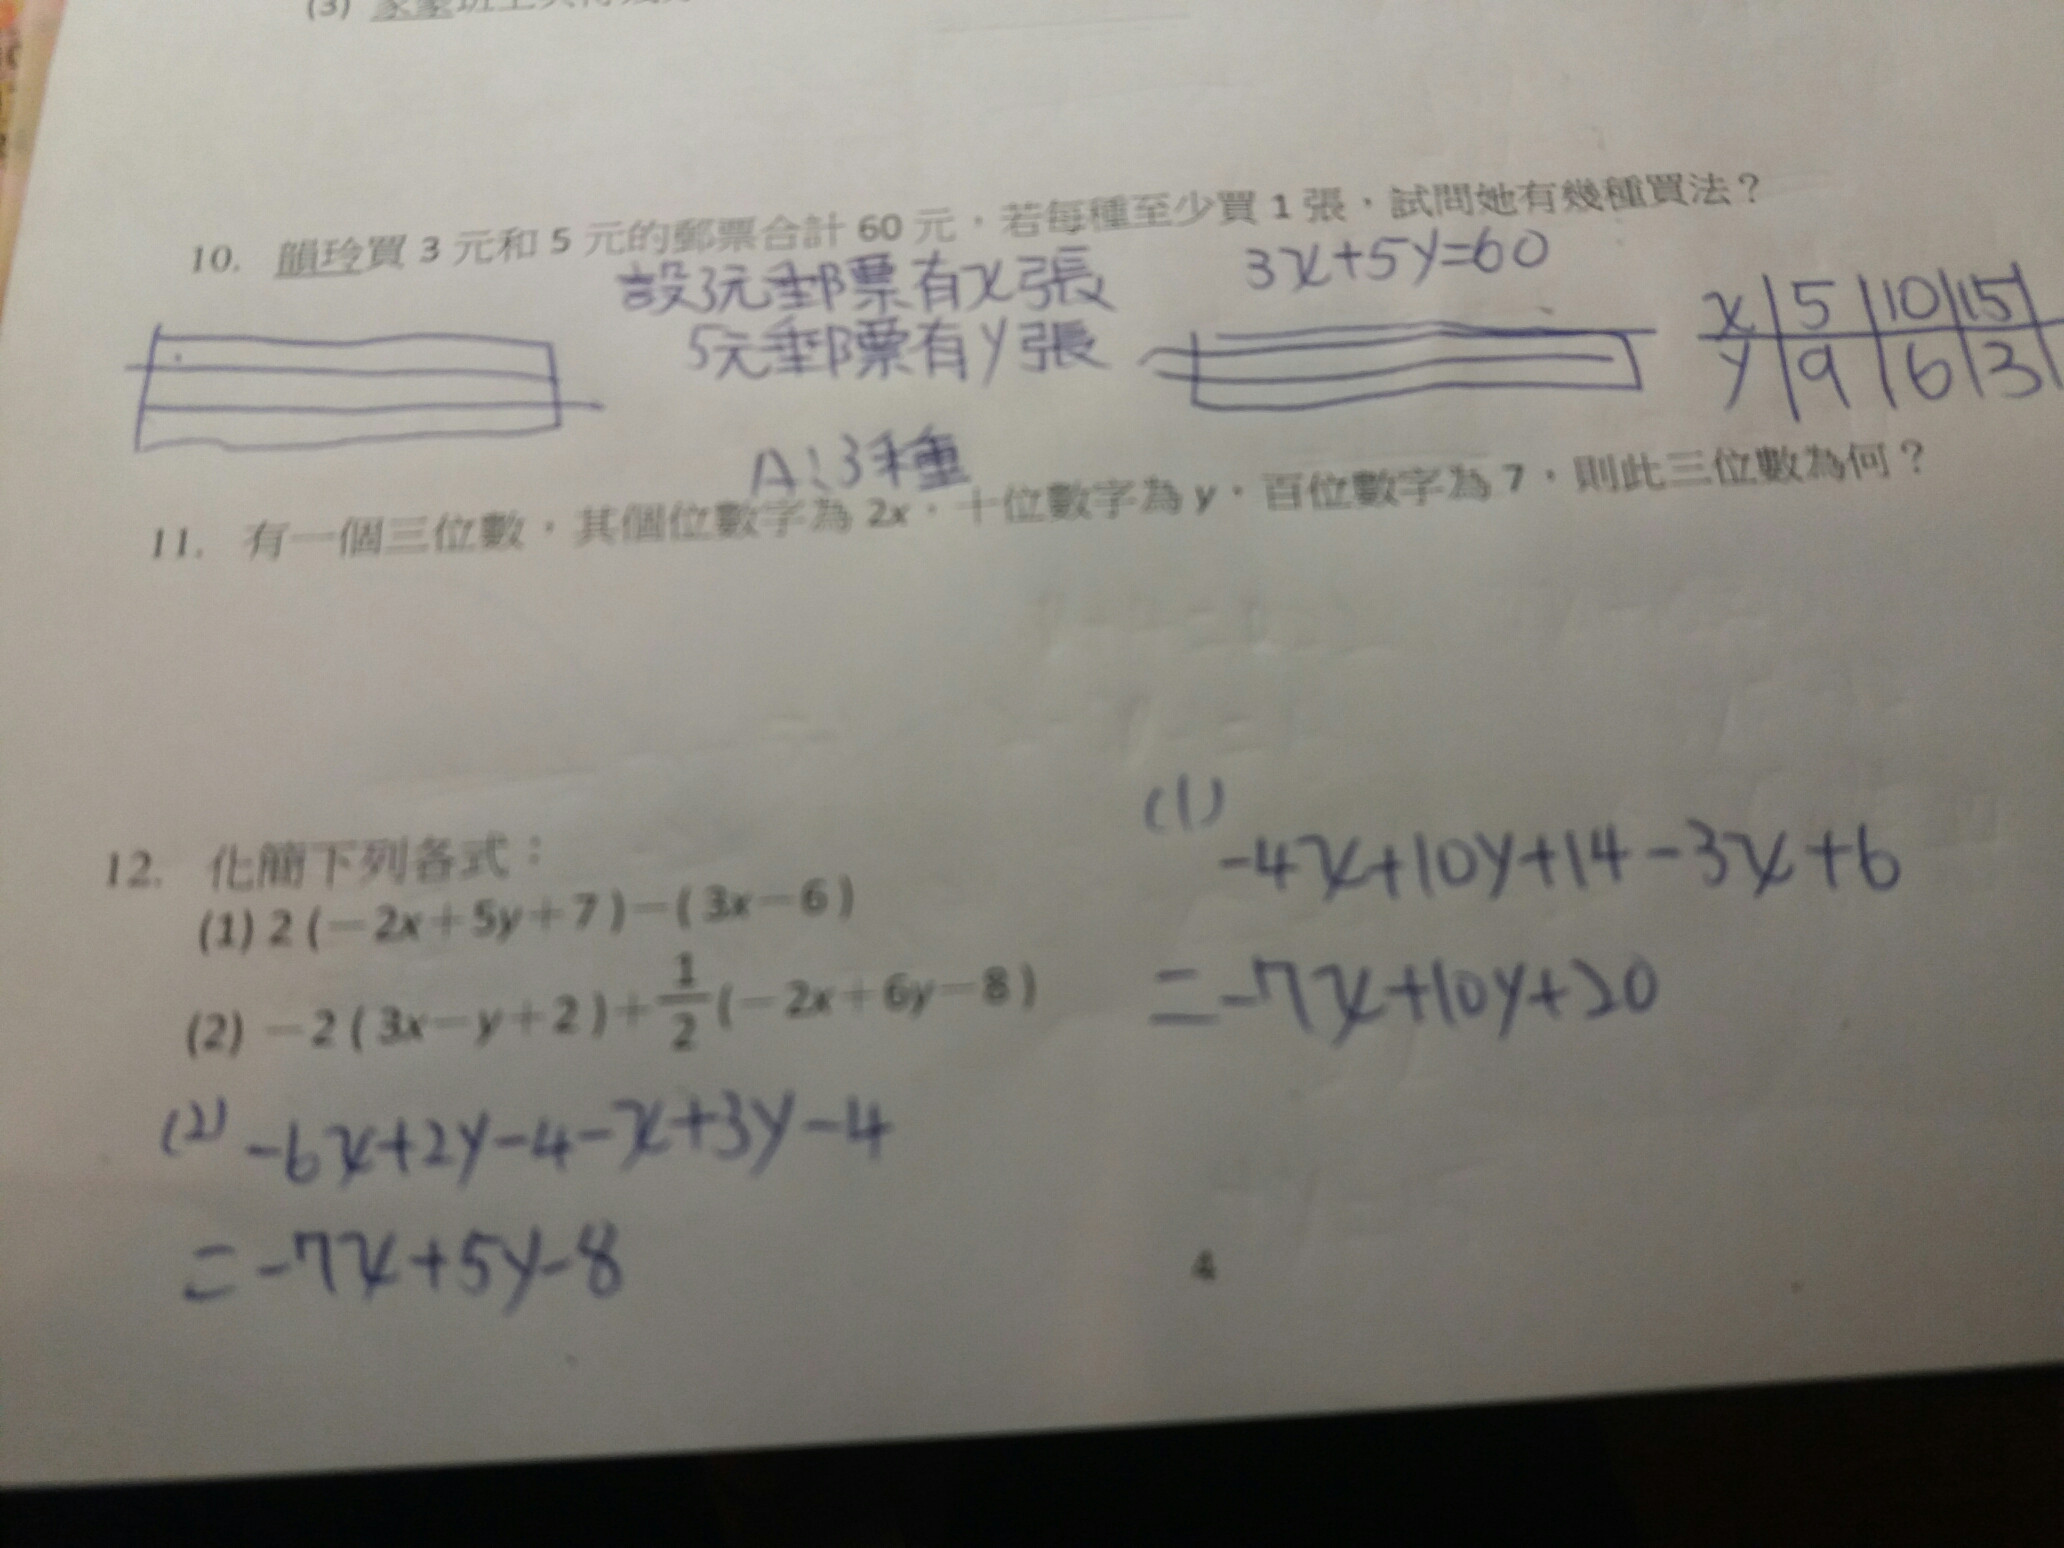 (3)
10. 韻玲買 3 元和 5 元的郵票合計 60 元，若每種至少買 1 張，試問她有幾種買法？
設3元郵票有x張
5元郵票有y張
3x+5y=60
x|5|10|15|
y|9|6|3|
A:3種
11. 有一個三位數，其個位數字為 2x，十位數字為 y，百位數字為 7，則此三位數為何？
12. 化簡下列各式：
(1) 2(－2x+5y+7)－(3x－6)
(2) －2(3x－y+2)+1/2(－2x+6y－8)
(1)
-4x+10y+14-3x+6
=-7x+10y+20
(2) -6x+2y-4-x+3y-4
=-7x+5y-8
4